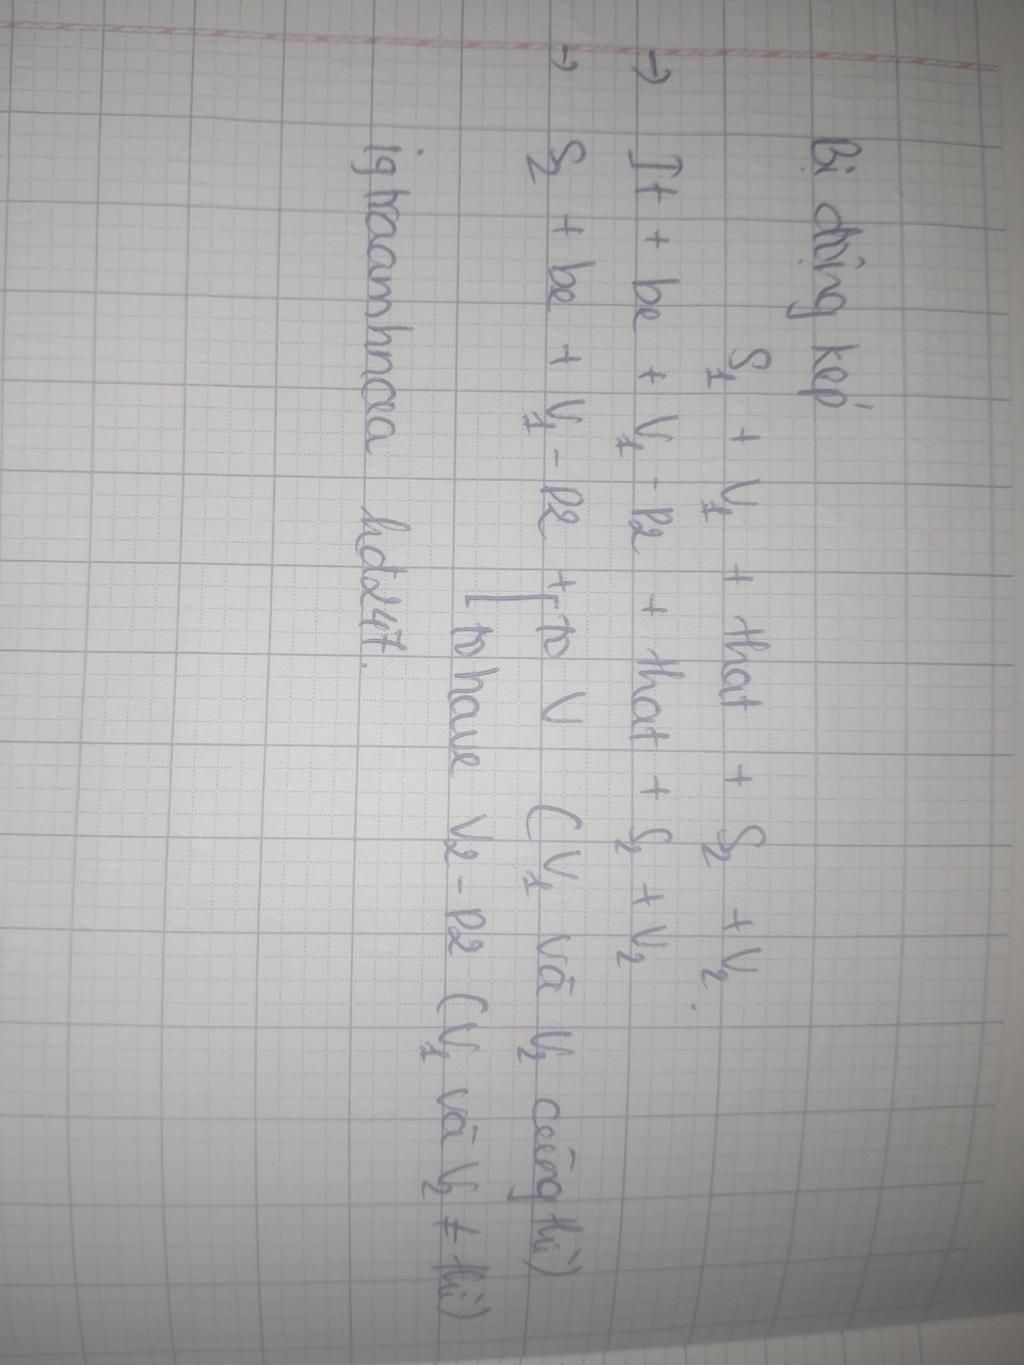 Bị động kép
S1 + V1 + that + S2 + V2.
→ It + be + V1 - P2 + that + S2 + V2
→ S2 + be + V1 - P2 + to V (V1 và V2 cùng thì)
to have V2 - P2 (V1 và V2 ≠ thì)
hd247.